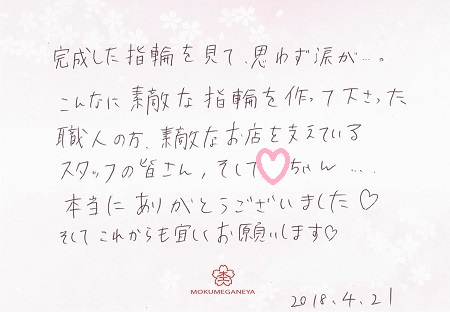 完成した指輪を見て、思わず涙が…。
こんなに素敵な指輪を作って下さった
職人の方、素敵なお店を支えている
スタッフの皆さん、そして♡ちゃん…
本当にありがとうございました♡
そしてこれからも宜しくお願いします♡
MOKUMEGANEYA
2018.4.21